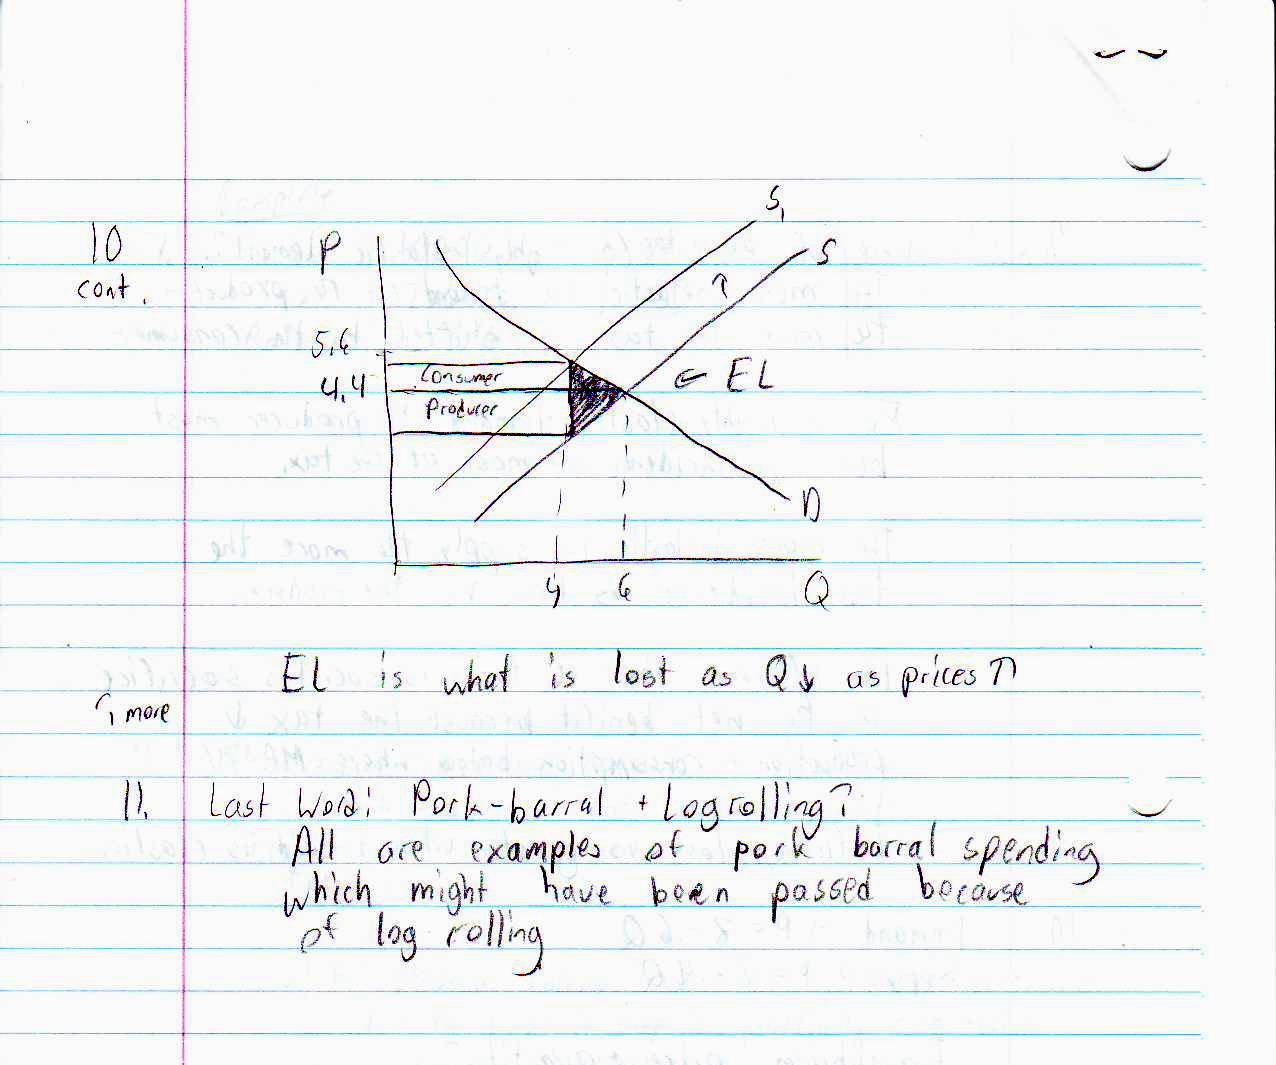 10
cont.
P
S₁
S
↑
5.6
4.4
Consumer
Producer
← EL
D
4
6
Q
EL is what is lost as Q↓ as prices ↑
↑ more
11. Last Word: Pork-barral + Logrolling?
All are examples of pork barral spending
which might have been passed because
of log rolling